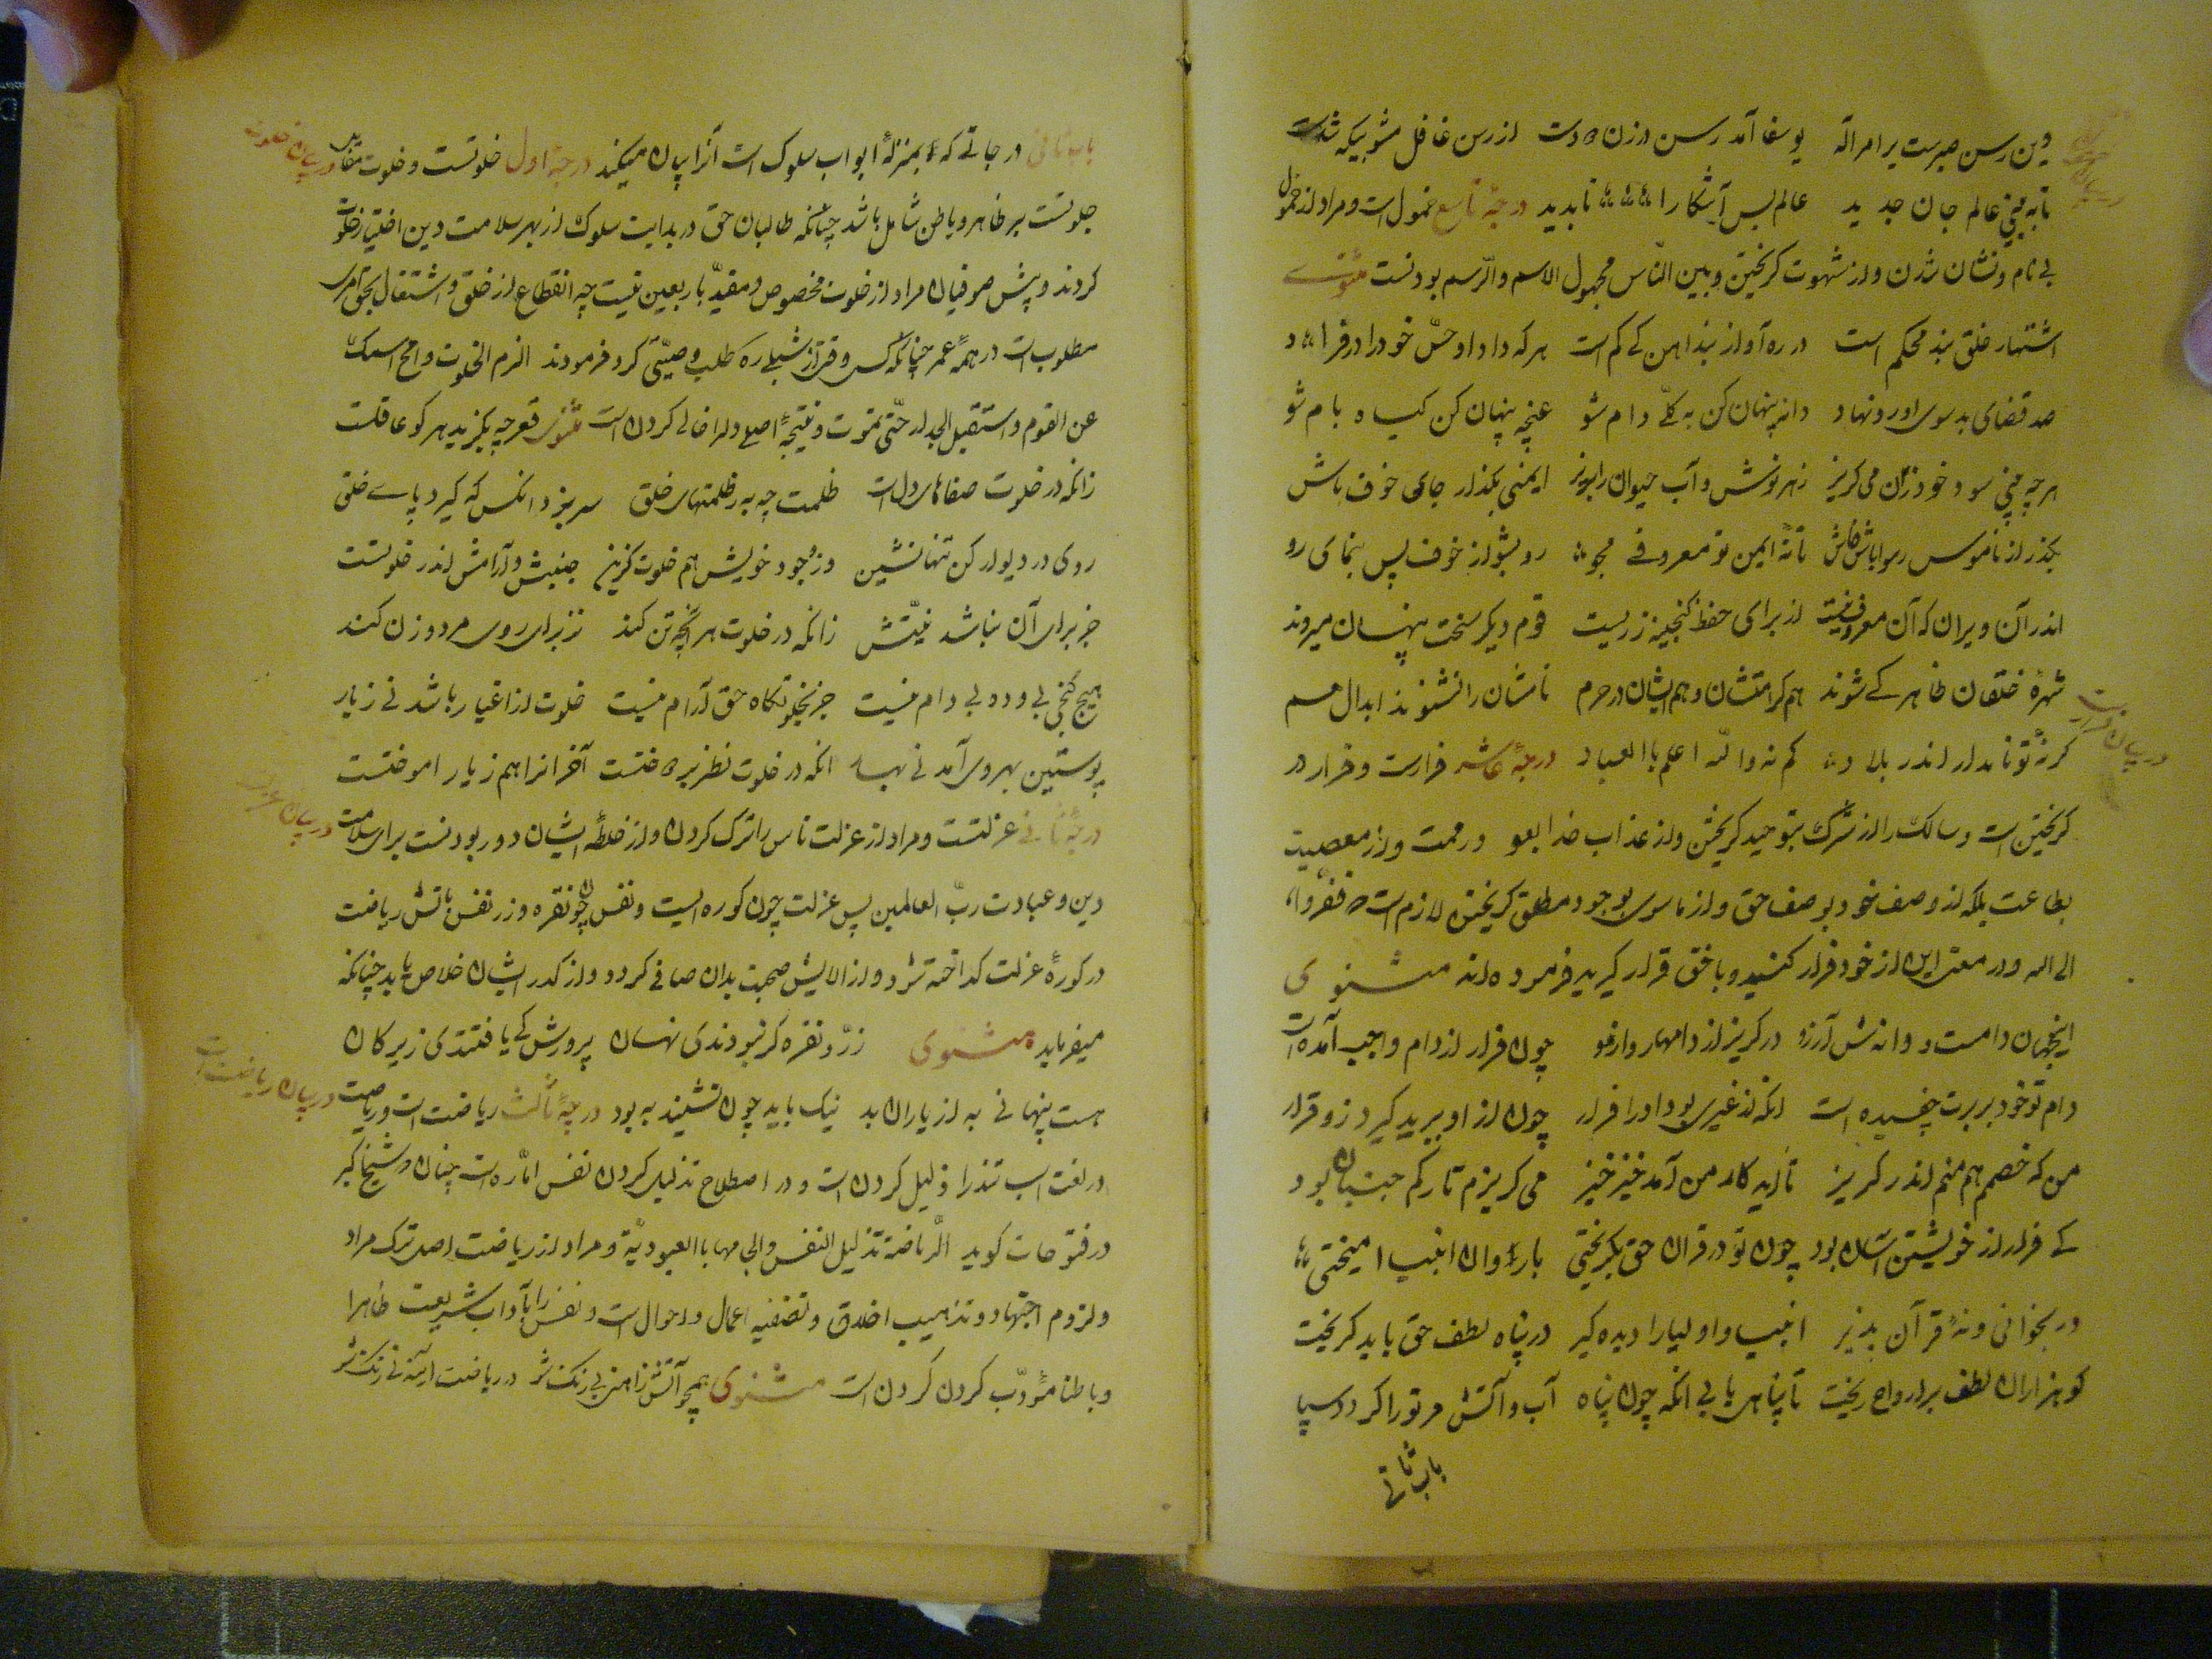 وین رسن صبرست بر امر اله یوسفا آمد رسن در زن دو دست از رسن غافل مشو بیگه شدست
تا به بینی عالم جان جدید عالم بس آشکارا ناپدید درجهٔ تاسع خمول است و مراد از خمول
بی نام و نشان شدن و از شهوت کریختن و بین النّاس مجهول الاسم والرّسم بودنست مثنوی
اشتهار خلق بند محکم است در ره او از بند آهن کی کم است هر که داد او حسن خود را در مزاد
صد قضای بد سوی او رو نهاد دانه پنهان کن به کلّی دام شو غنچه پنهان کن گیاه بام شو
هر چه بینی سود خود زان می کریز زهر نوش و آب حیوان را بریز ایمنی بگذار جای خوف باش
بگذر از ناموس رسوا باش فاش تا نهٔ ایمن تو معروفی مجو رو بشو از خوف پس بنمای رو
اندر آن ویران که آن معروف نیست از برای حفظ گنجینه زریست قوم دیگر سخت پنهان میروند
شهرهٔ خلقان ظاهر کی شوند هم کرامتشان و هم ایشان در حرم نامشان را نشنوند ابدال هم
در بیان فرارست
کم نه والله اعلم باالعباد درجهٔ عاشر فرارست و فرار در
کریختن است و سالک را از شرک بتوحید کریختن و از عذاب خدا بعفو و رحمت و از معصیت
بطاعت بلکه از وصف خود بوصف حق و از ماسوی بوجود مطلق کریختن لازم است ففرّوا
الی الله و در معنی این از خود فرار کنید و با حق قرار گیرید فرموده اند مثنوی
اینجهان دامست و دانه‌ش آرزو در گریز از دامها چون فرار از دام واجب آمده است
دام تو خود بر پرت چفسیده است آنکه از غیری بود او را فرار چون از او ببرید گیرد او قرار
من که خصمم هم منم اندر گریز تا ابد کار من آمد خیزخیز می گریزم تا رگم جنبان بود
کی فرار از خویشتن آسان بود چون تو در قرآن حق بگریختی با روان انبیا آمیختی
ور بخوانی و نهٔ قرآن پذیر انبیا و اولیا را دیده گیر در پناه لطف حق باید گریخت
کو هزاران لطف بر ارواح ریخت تا پناهی یابی آنکه چون پناه آب و آتش مر ترا گردد سپا
باب ثانی
باب ثانی در جاتی که بمنزلهٔ ابواب سلوک است آنرا بیان میکند درجهٔ اول خلوتست و خلوت مقابل
در بیان خلوت
جلوتست بر ظاهر و باطن شامل باشد چنانکه طالبان حق در بدایت سلوک از بهر سلامت دین اختیار خلوت
کردند و پیش صوفیان مراد از خلوت مخصوص و مقیّد باربعین نیست چه انقطاع از خلق و اشتغال بحق امری
مطلوب است در همهٔ عمر چنانکه کسی وقتی از شبلی ره طلب وصیّتی کرد فرمودند الزم الخلوت وامح اسمک
عن القوم واستقبل الجدار حتّی تموت و نتیجهٔ اصلی دل را خالی کردن است مثنوی قعر چه بگزید هر کو عاقلست
زانکه در خلوت صفاهای دل است ظلمت چه به ز ظلمتهای خلق سر نبرد آنکس که گیرد پای خلق
روی در دیوار کن تنها نشین وز وجود خویش هم خلوت گزین جنبش و آرامش اندر خلوتست
جز برای آن نباشد نیّتش زانکه در خلوت هر آنچه تن کند نز برای روی مرد و زن کند
هیچ کنجی بی دد و بی دام نیست جز بخلوتگاه حق آرام نیست خلوت از اغیار باشد نی ز یار
پوستین بهر دی آمد نی بهار آنکه در خلوت نظر بر دوختست آخر آنرا هم ز یار آموختست
درجهٔ ثانی عزلتست و مراد از عزلت ناس را ترک کردن و از خلطهٔ ایشان دور بودنست برای سلامت
دین و عبادت ربّ العالمین پس عزلت چون کوره ایست و نفس چون نقره و زر نفس باتش ریاضت
در کورهٔ عزلت گداخته شود و از الایش صحبت بدان صافی گردد و از کدر ایشان خلاص یابد چنانکه
میفرماید مثنوی زرّ و نقره گر نبودندی نهان پرورش کی یافتندی زیر کان
هست پنهانی به از یاران بد نیک باید چون نشیند به بود درجهٔ ثالث ریاضت است و ریاضت
در بیان ریاضت است
در لغت اسب تند را ذلیل کردن است و در اصطلاح تذلیل کردن نفس امّاره است چنان که شیخ اکبر
در فتوحات گوید الرّیاضة تذلیل النفس والجامها باالعبودیّة و مراد از ریاضت اصلی ترک مراد
و لزوم اجتهاد و تهذیب اخلاق و تصفیه اعمال و احوال است و نفس را بآداب شریعت ظاهرا
و باطنا مؤدّب کردن کردن است مثنوی همچو آتش ز آهنی بی رنگ شو در ریاضت آینهٔ بی زنگ شو